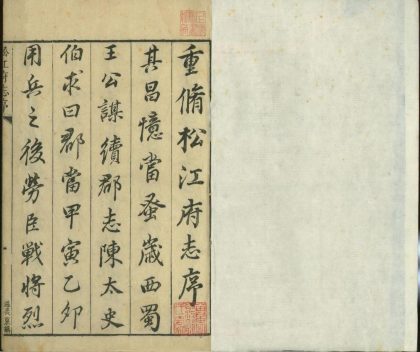 重脩松江府志序
其昌憶當蚤歲西蜀
王公謀續郡志陳太史
伯求曰郡當甲寅乙卯
用兵之後勞臣戰將烈
松江府志序